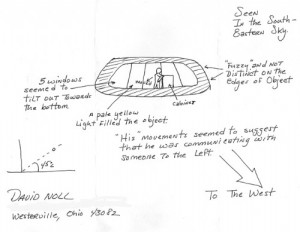 Seen
In the South-
Eastern Sky.
"Fuzzy" and NOT
Distinct on the
Edges of Object
5 windows
seemed to
Tilt out Towards
the bottom
Cabinet
A pale yellow
Light filled the object.
"His" movements seemed to suggest
that he was communicating with
someone To the Left.
45°
To The West
David Noll
Westerville, Ohio 43082